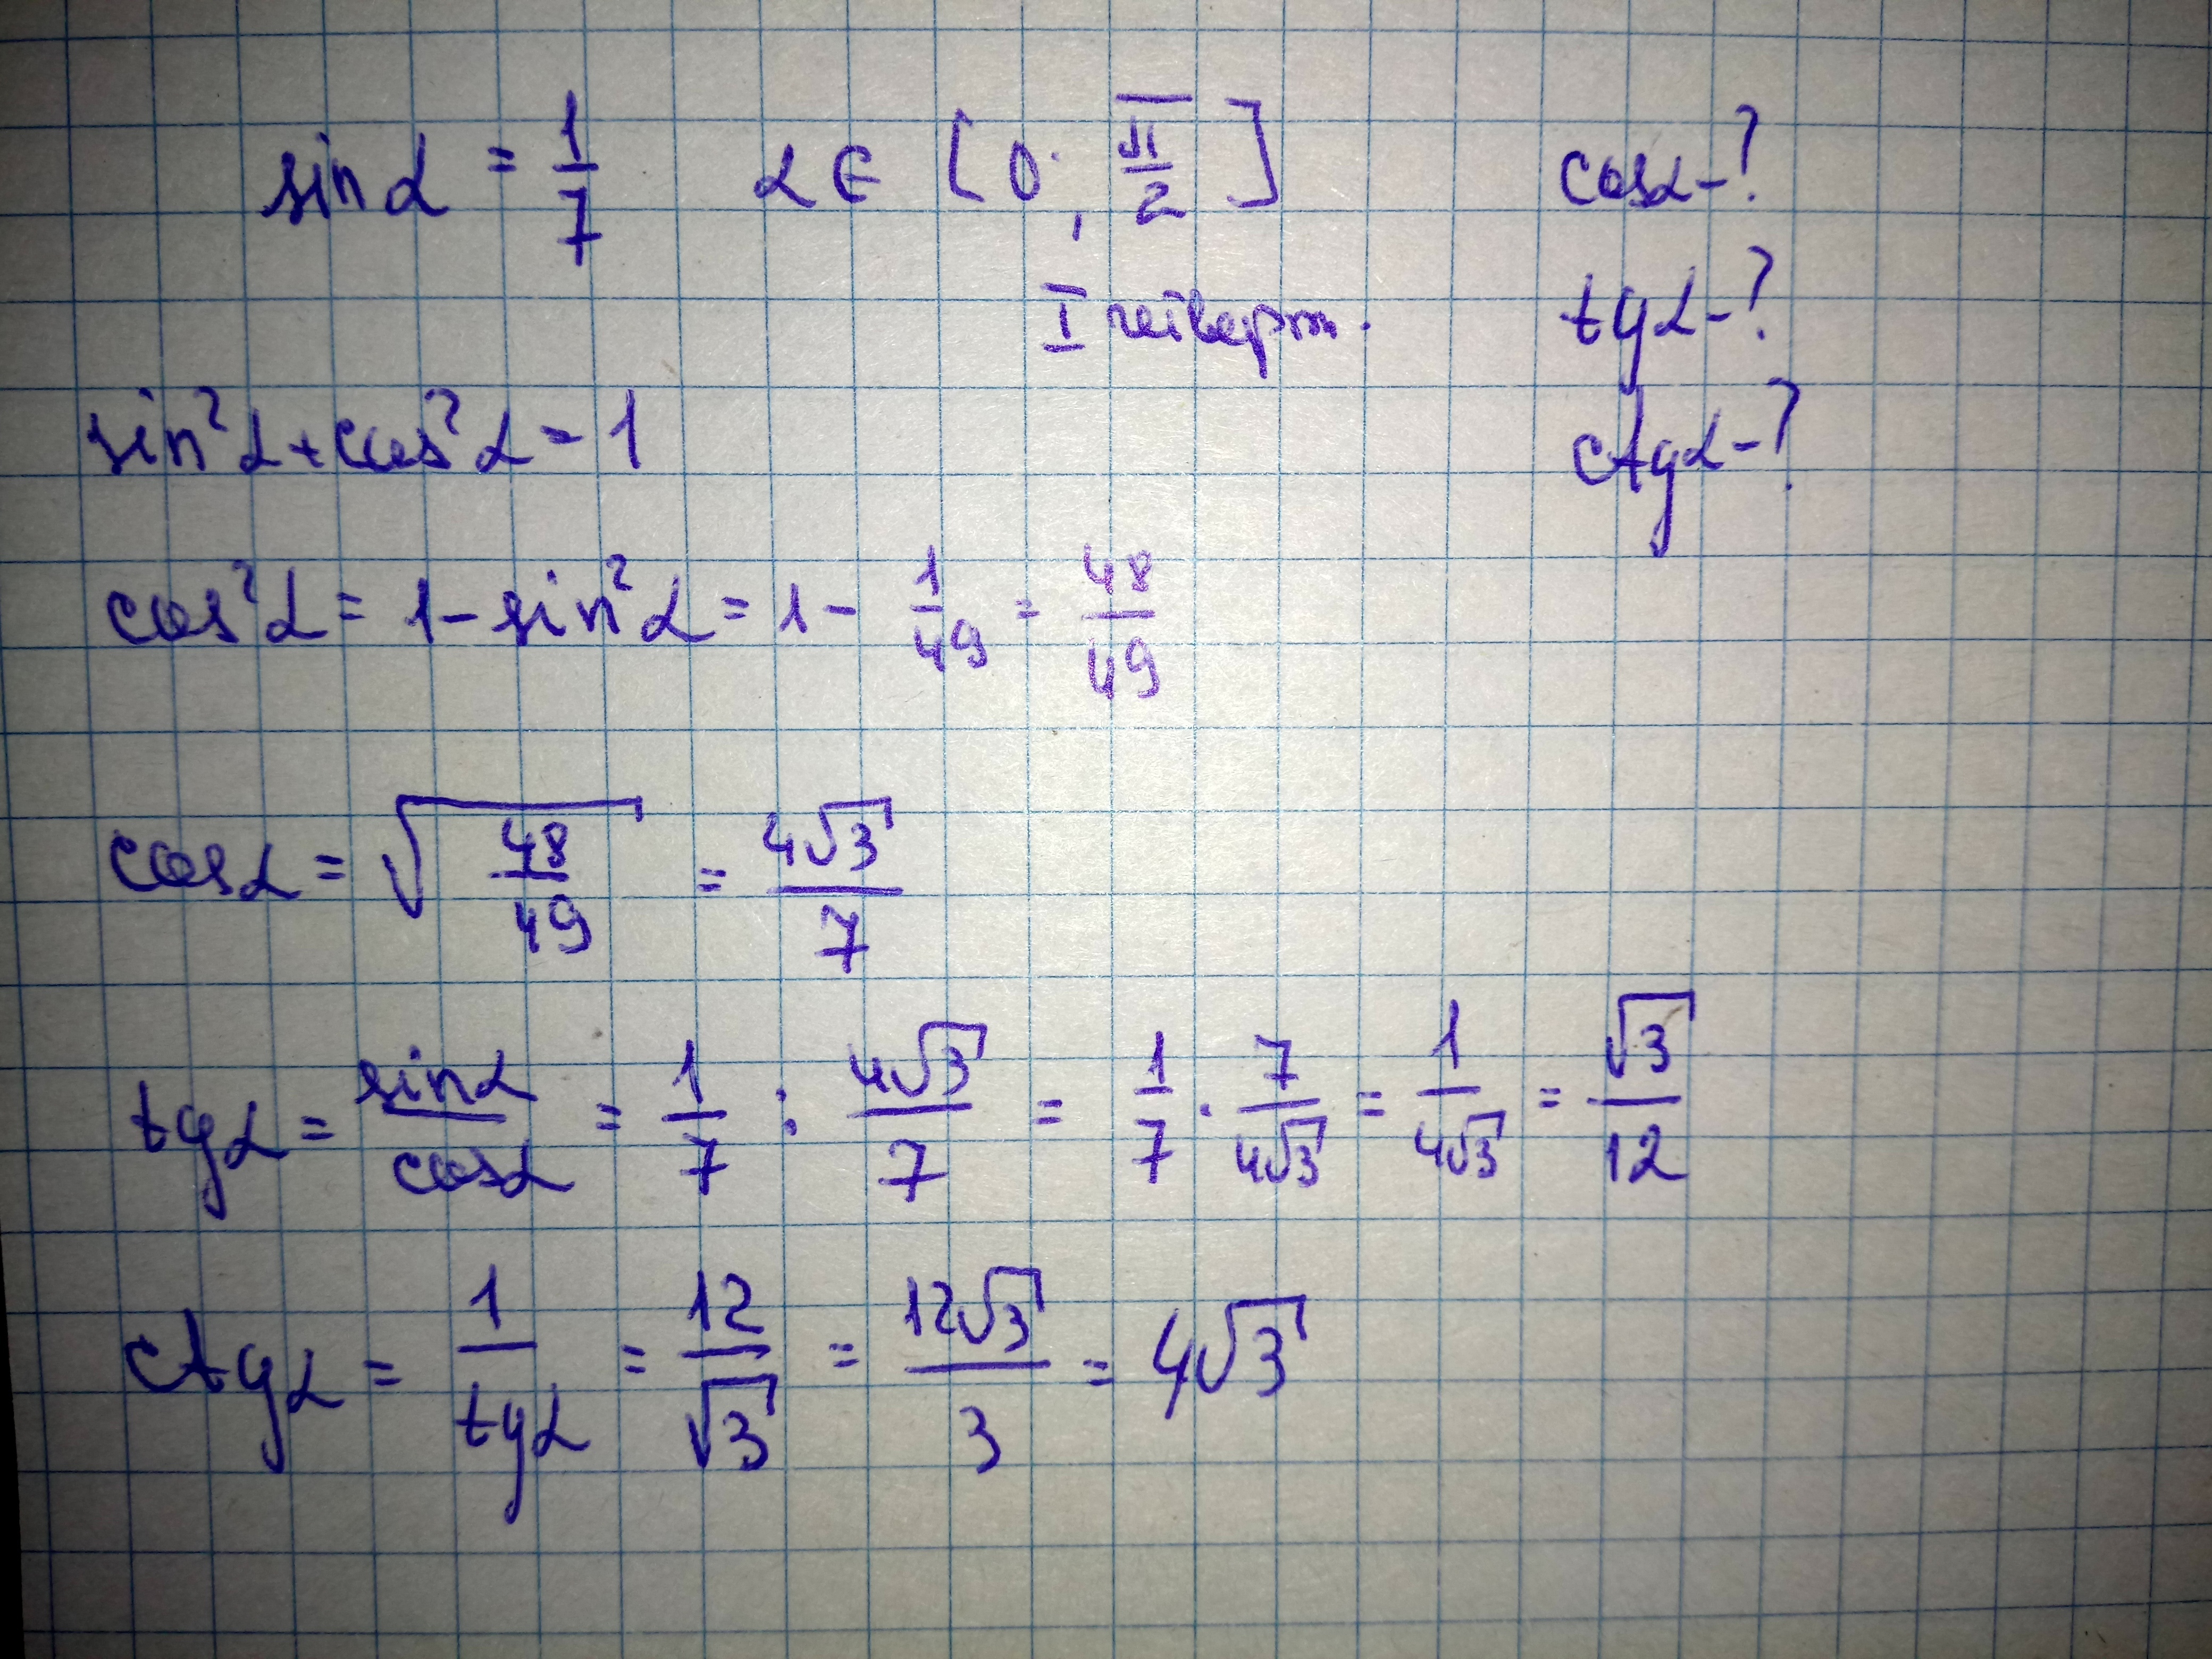 sin α = 1/7 α ∈ [0; π/2] cos α - ?
I четверт. tg α - ?
sin²α + cos²α = 1 ctg α - ?
cos²α = 1 - sin²α = 1 - 1/49 = 48/49
cos α = √(48/49) = 4√3/7
tg α = sin α/cos α = 1/7 : 4√3/7 = 1/7 · 7/4√3 = 1/4√3 = √3/12
ctg α = 1/tg α = 12/√3 = 12√3/3 = 4√3